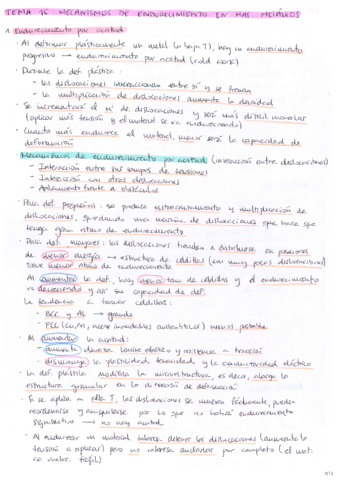 TEMA 16 MECANISMOS DE ENDURECIMIENTO EN MAS. METÁLICOS
1. Endurecimiento por acritud
Al deformar plásticamente un metal (a baja T), hay un endurecimiento
progresivo → endurecimiento por acritud (cold work)
Durante la def. plástica:
- las dislocaciones interaccionan entre sí y se frenan
- la multiplicación de dislocaciones aumenta la densidad
Se incrementará el nº de dislocaciones y será más difícil moverlas
(aplicar más tensión y el material se va endureciendo)
Cuanto más endurece el material, menor será la capacidad de
deformación
Mecanismos de endurecimiento por acritud (interacción entre dislocaciones)
- Interacción entre sus campos de tensiones
- Interacción con otras dislocaciones
- Apilamiento frente a obstáculos
Para def. pequeñas: se produce entrecruzamiento y multiplicación de
dislocaciones, quedando una maraña de dislocaciones que hace que
tenga gran ritmo de endurecimiento
Para def. mayores: las dislocaciones tienden a distribuirse en posiciones
de menor energía → estructura de celdillas (en muy pocas dislocaciones)
Tiene menor ritmo de endurecimiento
Al aumentar la def, hay menor tam. de celdillas y el endurecimiento
es decreciendo y así su capacidad de def.
La tendencia a formar celdillas:
- BCC y Al → grande
- FCC (Cu, Ni, acero inoxidables austeníticos) menos posible
Al aumentar la acritud:
- aumenta dureza, límite elástico y resistencia a tracción
- disminuye la plasticidad, tenacidad y la conductividad eléctrica
La def. plástica modifica la microestructura, es decir, alarga la
estructura granular en la dirección de deformación
Si se aplica a alta T, las dislocaciones se mueven fácilmente, pueden
reordenarse y aniquilarse por lo que no habrá endurecimiento
significativo → no hay acritud
Al endurecer un material interesa detener las dislocaciones (aumenta la
tensión a aplicar) pero no interesa anclarlas por completo (el mat.
se vuelve frágil)